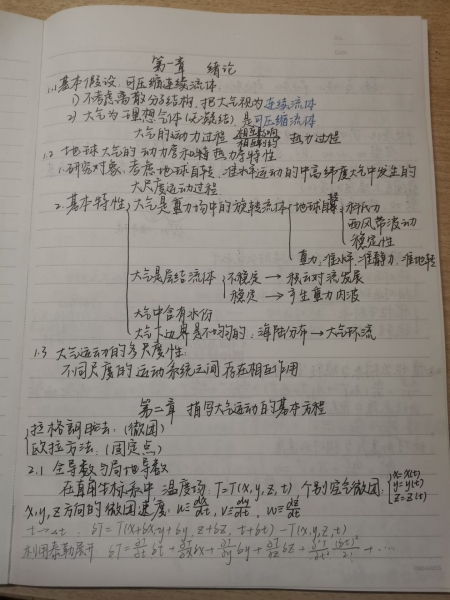 第一章 绪论
1.1 基本假设:可压缩连续流体
1) 不考虑离散分子结构,把大气视为连续流体
2) 大气为理想气体(无凝结)是可压缩流体
大气的动力过程 相互影响 相互制约 热力过程
1.2 地球大气的动力学和热力学特性
1. 研究对象:考虑地球自转、准水平运动的中高纬度大气中发生的
大尺度运动过程
2. 基本特性 大气是重力场中的旋转流体 地球自转 科氏力
西风带波动
稳定性
重力:准水平、准静力、准地转
大气是层结流体 不稳定 → 积云对流发展
稳定 → 产生重力内波
大气中含有水份
大气下边界是不均匀的:海陆分布 → 大气环流
1.3 大气运动的多尺度性:
不同尺度的运动系统之间存在相互作用
第二章 描写大气运动的基本方程
拉格朗日法:(微团)
欧拉方法:(固定点)
2.1 全导数与局地导数
在直角坐标系中 温度场:T=T(x,y,z,t) 个别空气微团: x=x(t)
y=y(t)
z=z(t)
x,y,z方向的微团速度:u≡dx/dt, v≡dy/dt, w≡dz/dt
t→Δt. δT=T(x+δx,y+δy,z+δz,t+δt)-T(x,y,z,t)
利用泰勒展开 δT=∂T/∂t δt+∂T/∂x δx+∂T/∂y δy+∂T/∂z δz+∂²T/∂t² (δt)²/2!+…